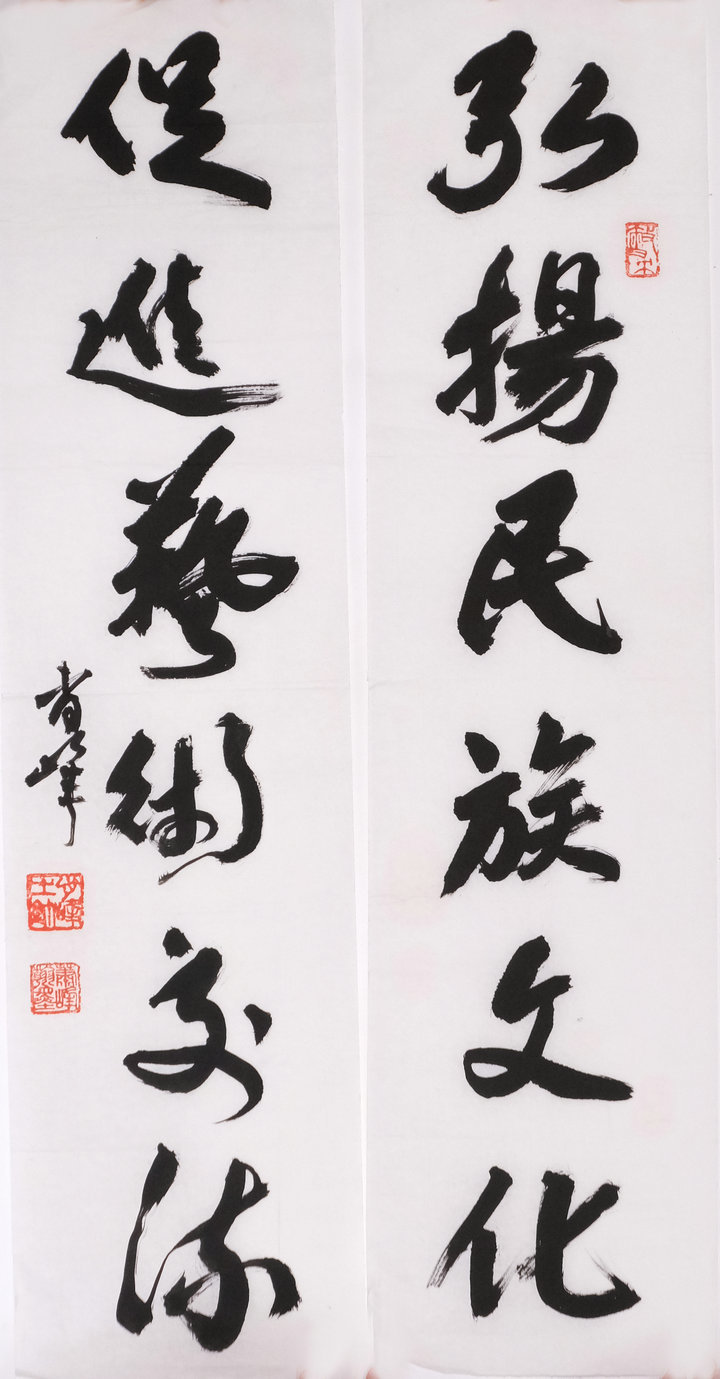 弘揚民族文化
促進藝術交流
肖峰